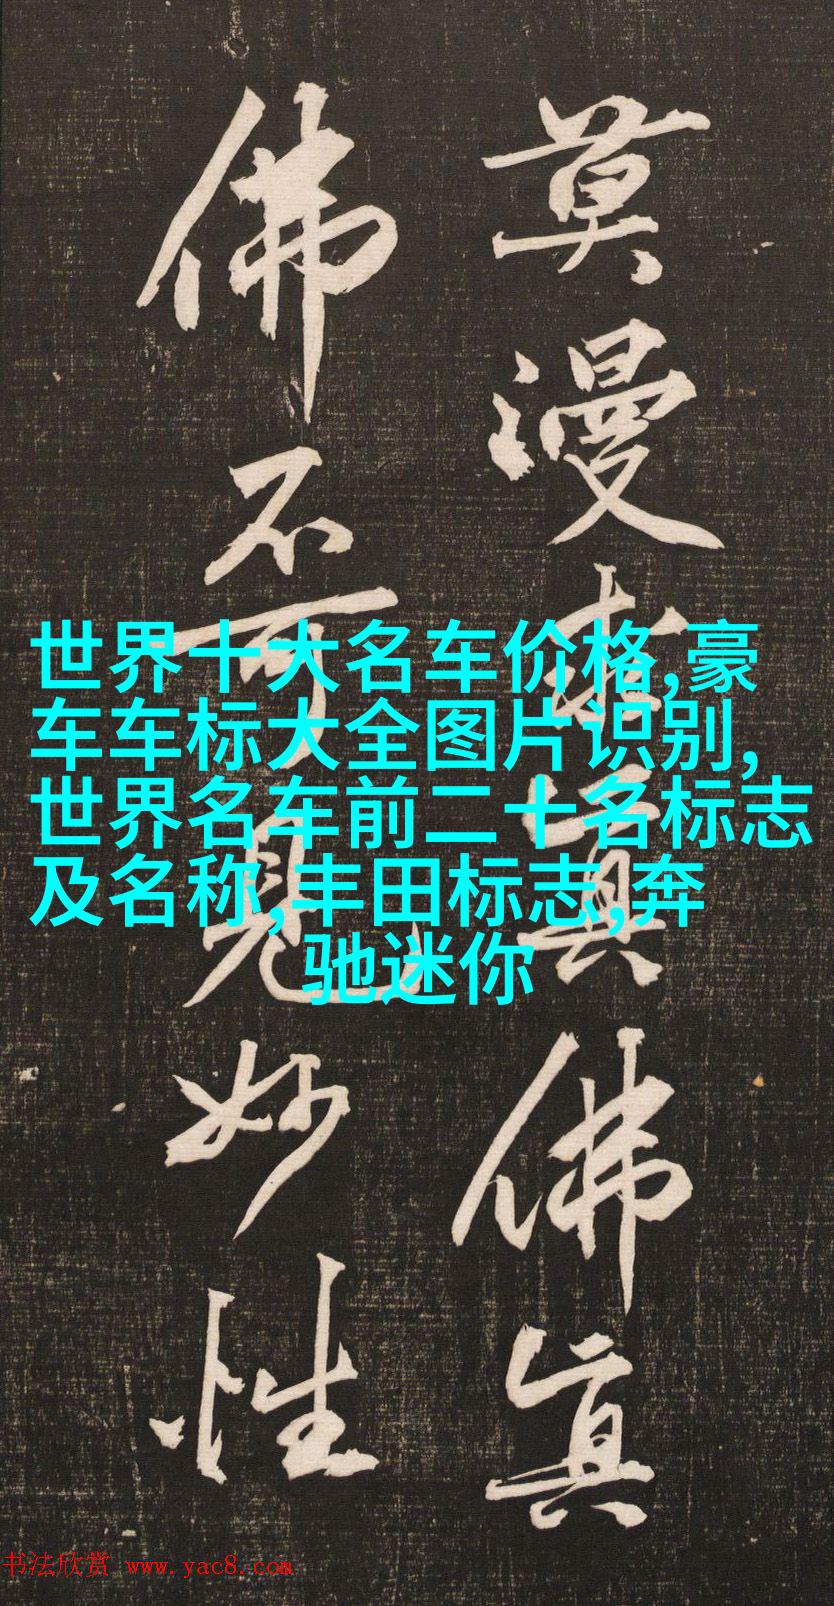 莫漫求真佛真
佛不可見妙性
世界十大名车价格,豪
车车标大全图片识别,
世界名车前二十名标志
及名称,丰田标志,奔
驰迷你
书法欣赏 www.yac8.com